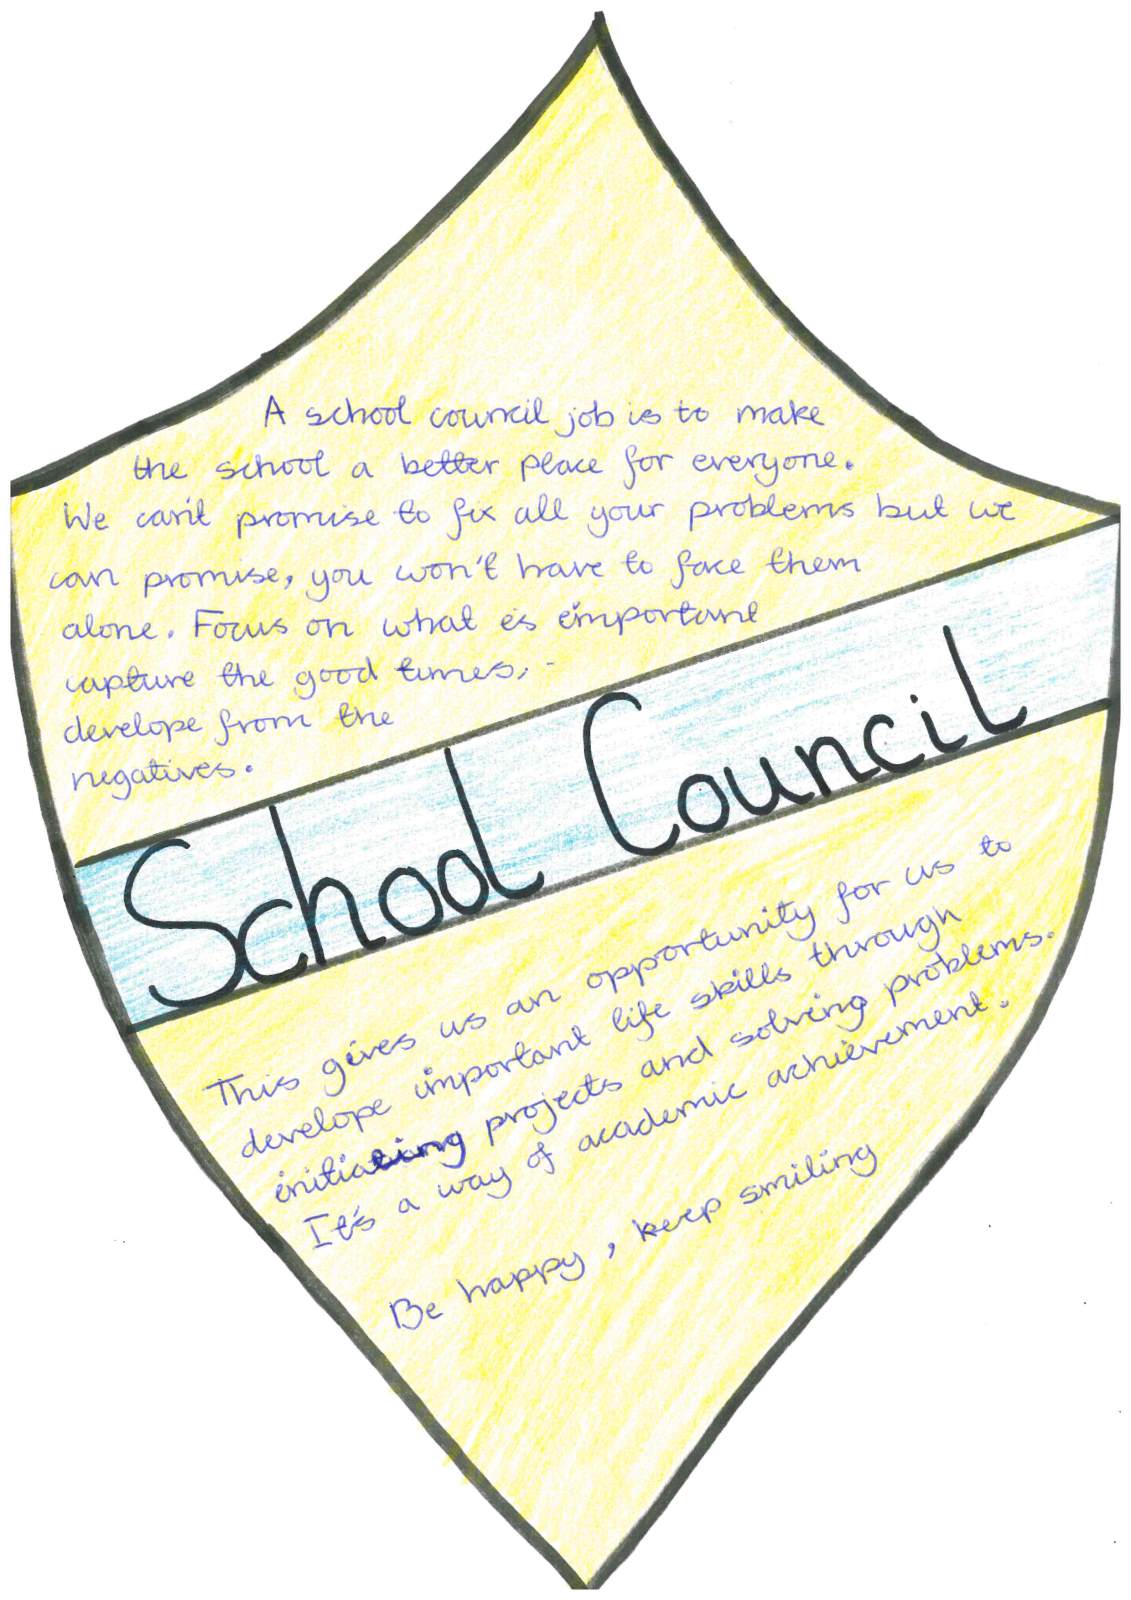 A school council job is to make
the school a better place for everyone.
We can't promise to fix all your problems but we
can promise, you won't have to face them
alone. Focus on what is important
capture the good times,
develope from the
negatives.
School Council
This gives us an opportunity for us to
develope important life skills through
initiating projects and solving problems.
It's a way of academic achievement.
Be happy, keep smiling